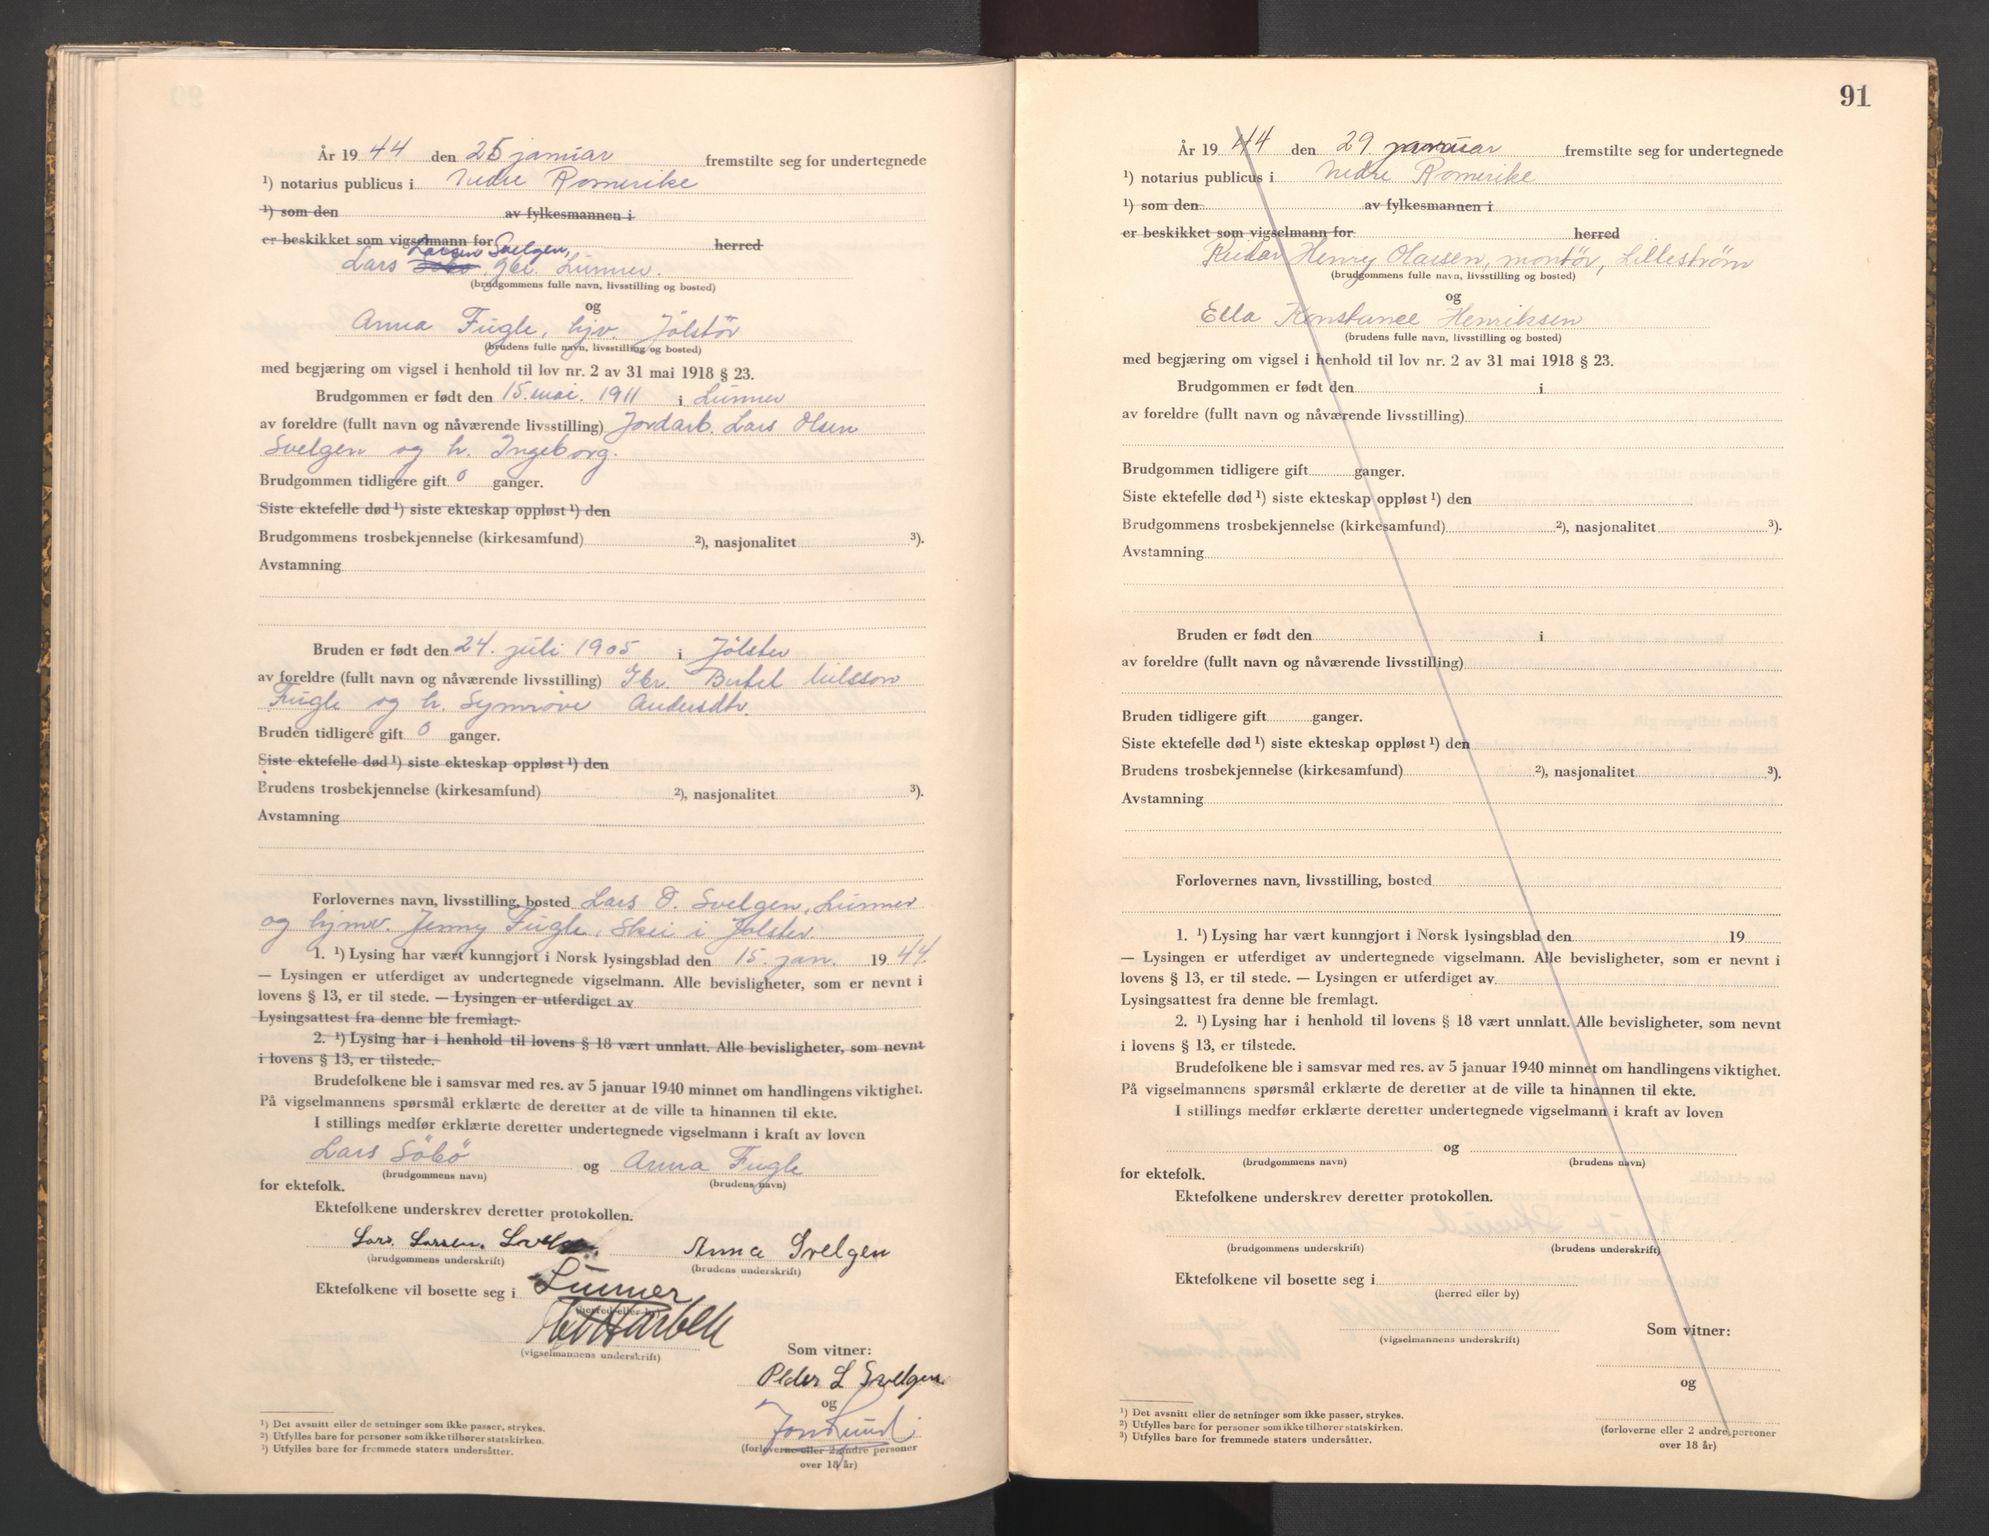 År 19 44 den 25 januar fremstilte seg for undertegnede
¹) notarius publicus i Nedre Romerike
¹) som den av fylkesmannen i
er beskikket som vigselmann for herred
Larsen Svelgen,
Lars Söbö, gbr. Lunner.
(brudgommens fulle navn, livsstilling og bosted)
og
Anna Fugle, hjv. Jölstör
(brudens fulle navn, livsstilling og bosted)
med begjæring om vigsel i henhold til lov nr. 2 av 31 mai 1918 § 23.
Brudgommen er født den 15. mai. 1911 i Lunner
av foreldre (fullt navn og nåværende livsstilling) Jordarb. Lars Olsen
Svelgen og h. Ingeborg.
Brudgommen tidligere gift 0 ganger.
Siste ektefelle død ¹) siste ekteskap oppløst ¹) den
Brudgommens trosbekjennelse (kirkesamfund) ²), nasjonalitet ³).
Avstamning
Bruden er født den 24. juli 1905 i Jölster
av foreldre (fullt navn og nåværende livsstilling) Gbr. Bertel Nilsson
Fugle og h. Synnöve Andersdtr.
Bruden tidligere gift 0 ganger.
Siste ektefelle død ¹) siste ekteskap oppløst ¹) den
Brudens trosbekjennelse (kirkesamfund) ²), nasjonalitet ³).
Avstamning
Forlovernes navn, livsstilling, bosted Lars O. Svelgen, Lunner
og hjmv. Jenny Fugle, Skei i Jölster.
1. ¹) Lysing har vært kunngjort i Norsk lysingsblad den 15. jan. 19 44.
— Lysingen er utferdiget av undertegnede vigselmann. Alle bevisligheter, som er nevnt i
lovens § 13, er til stede. — Lysingen er utferdiget av
Lysingsattest fra denne ble fremlagt.
2. ¹) Lysing har i henhold til lovens § 18 vært unnlatt. Alle bevisligheter, som nevnt
i lovens § 13, er tilstede.
Brudefolkene ble i samsvar med res. av 5 januar 1940 minnet om handlingens viktighet.
På vigselmannens spørsmål erklærte de deretter at de ville ta hinannen til ekte.
I stillings medfør erklærte deretter undertegnede vigselmann i kraft av loven
Lars Söbö og Anna Fugle
(brudgommens navn) (brudens navn)
for ektefolk.
Ektefolkene underskrev deretter protokollen.
Lars. Larsen. Anna Svelgen
(brudgommens underskrift) (brudens underskrift)
Ektefolkene vil bosette seg i Lunner
(herred eller by)
(vigselmannens underskrift)
Som vitner:
Peder L Svelgen
og
Jon Lund
(forloverne eller 2 andre personer
over 18 år)
¹) Det avsnitt eller de setninger som ikke passer, strykes.
²) Utfylles bare for personer som ikke tilhører statskirken.
³) Utfylles bare for fremmede staters undersåtter.
91
År 19 44 den 29 januar fremstilte seg for undertegnede
¹) notarius publicus i Nedre Romerike
¹) som den av fylkesmannen i
er beskikket som vigselmann for herred
Reidar Henry Olaisen, montör, Lilleström
(brudgommens fulle navn, livsstilling og bosted)
og
Ella Konstance Henriksen
(brudens fulle navn, livsstilling og bosted)
med begjæring om vigsel i henhold til lov nr. 2 av 31 mai 1918 § 23.
Brudgommen er født den i
av foreldre (fullt navn og nåværende livsstilling)
Brudgommen tidligere gift ganger.
Siste ektefelle død ¹) siste ekteskap oppløst ¹) den
Brudgommens trosbekjennelse (kirkesamfund) ²), nasjonalitet ³).
Avstamning
Bruden er født den i
av foreldre (fullt navn og nåværende livsstilling)
Bruden tidligere gift ganger.
Siste ektefelle død ¹) siste ekteskap oppløst ¹) den
Brudens trosbekjennelse (kirkesamfund) ²), nasjonalitet ³).
Avstamning
Forlovernes navn, livsstilling, bosted
1. ¹) Lysing har vært kunngjort i Norsk lysingsblad den 19
— Lysingen er utferdiget av undertegnede vigselmann. Alle bevisligheter, som er nevnt i
lovens § 13, er til stede. — Lysingen er utferdiget av
Lysingsattest fra denne ble fremlagt.
2. ¹) Lysing har i henhold til lovens § 18 vært unnlatt. Alle bevisligheter, som nevnt
i lovens § 13, er tilstede.
Brudefolkene ble i samsvar med res. av 5 januar 1940 minnet om handlingens viktighet.
På vigselmannens spørsmål erklærte de deretter at de ville ta hinannen til ekte.
I stillings medfør erklærte deretter undertegnede vigselmann i kraft av loven
og
(brudgommens navn) (brudens navn)
for ektefolk.
Ektefolkene underskrev deretter protokollen.
(brudgommens underskrift) (brudens underskrift)
Ektefolkene vil bosette seg i
(herred eller by)
(vigselmannens underskrift)
Som vitner:
og
(forloverne eller 2 andre personer
over 18 år)
¹) Det avsnitt eller de setninger som ikke passer, strykes.
²) Utfylles bare for personer som ikke tilhører statskirken.
³) Utfylles bare for fremmede staters undersåtter.